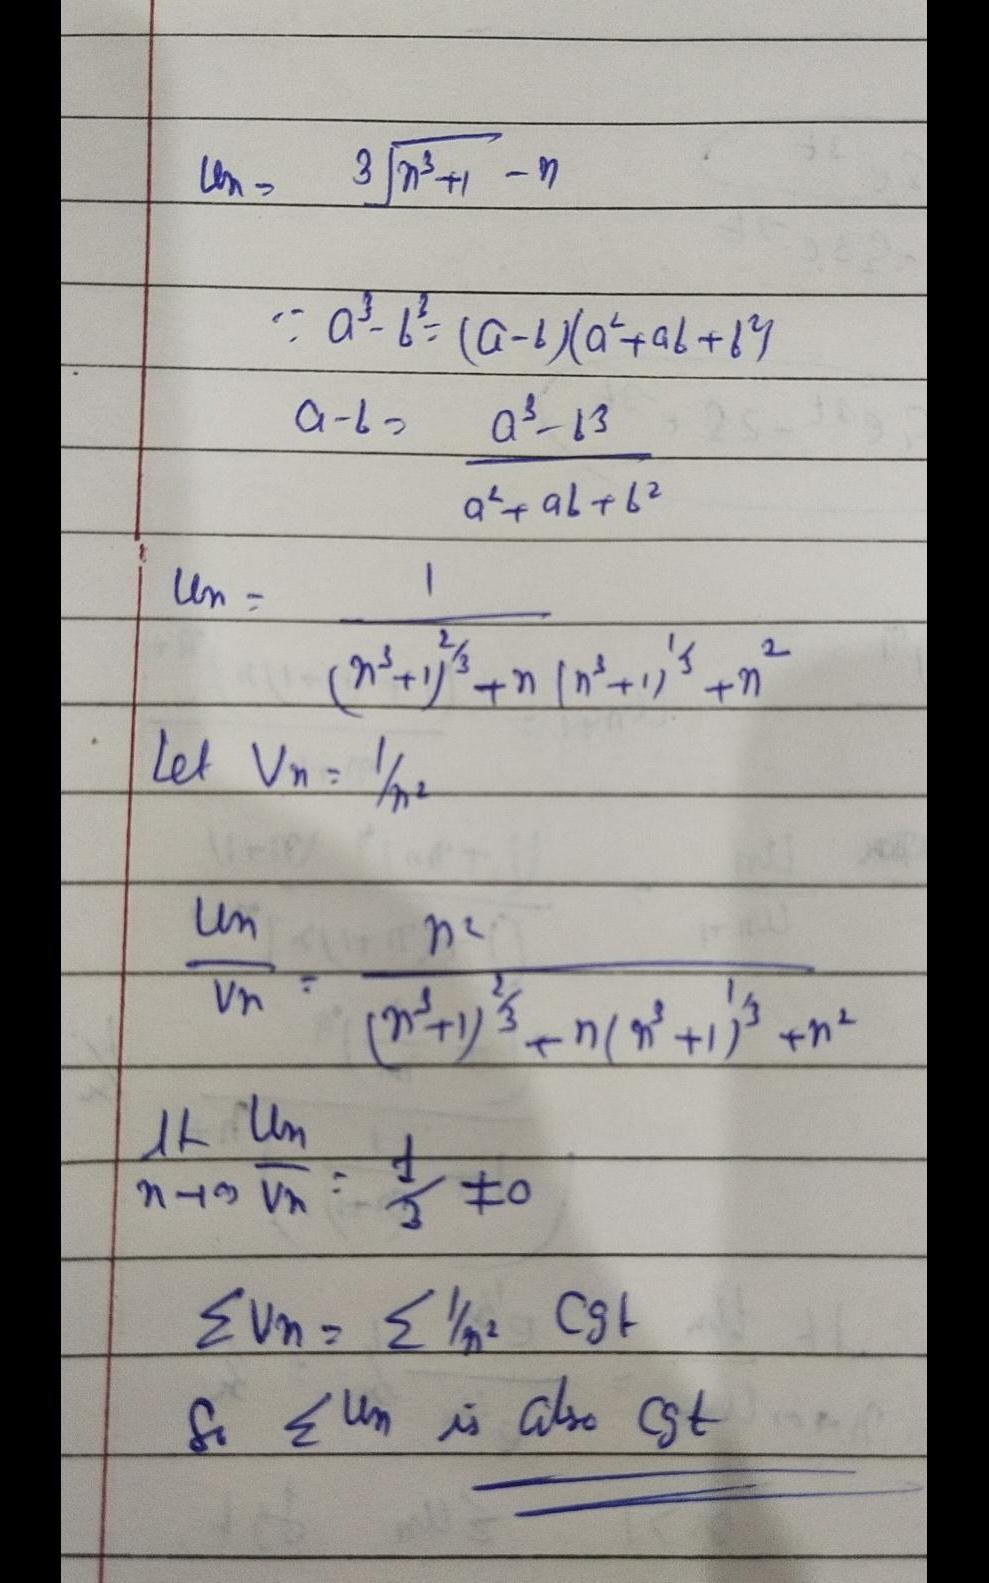 Un = 3√n³+1 - n
∵ a³-b³= (a-b)(a²+ab+b²)
a-b= a³-b3
a²+ab+b²
Un = 1
(n³+1)^2/3 + n (n³+1)^1/3 + n²
Let Vn = 1/n²
Un n²
Vn = (n³+1)^2/3 + n(n³+1)^1/3 + n²
lt Un
n→∞ Vn = 1/3 ≠0
ΣVn = Σ 1/n² Cgt
So ΣUn is also Cgt